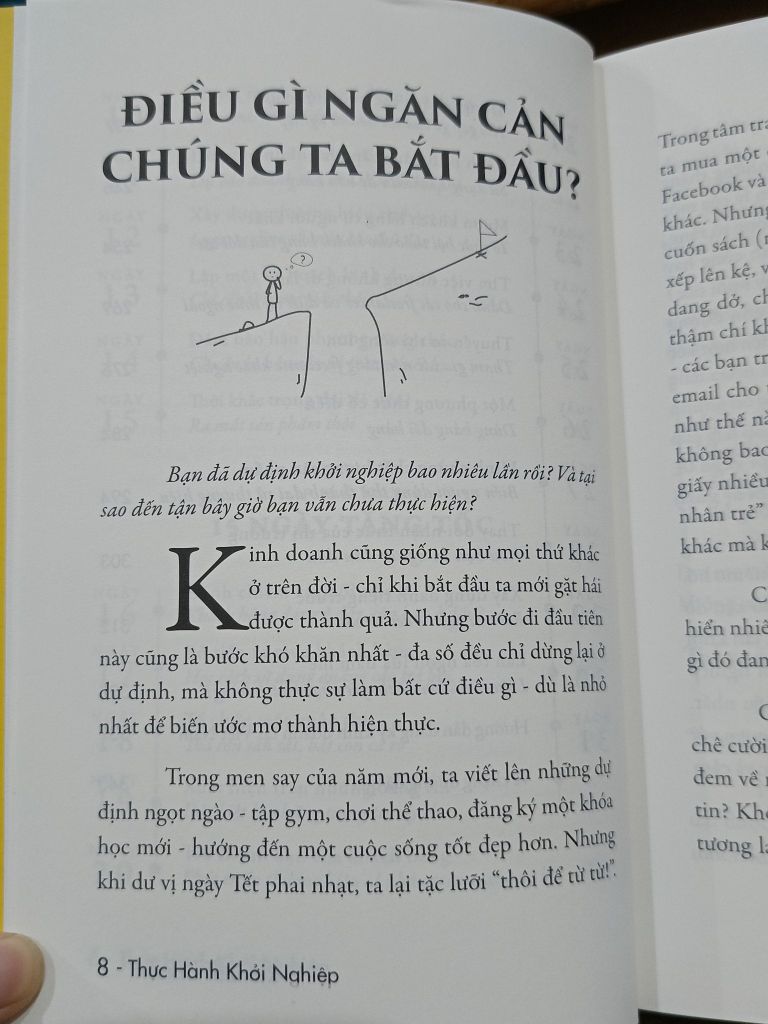 ĐIỀU GÌ NGĂN CẢN
CHÚNG TA BẮT ĐẦU?
?
Bạn đã dự định khởi nghiệp bao nhiêu lần rồi? Và tại
sao đến tận bây giờ bạn vẫn chưa thực hiện?
Kinh doanh cũng giống như mọi thứ khác
ở trên đời - chỉ khi bắt đầu ta mới gặt hái
được thành quả. Nhưng bước đi đầu tiên
này cũng là bước khó khăn nhất - đa số đều chỉ dừng lại ở
dự định, mà không thực sự làm bất cứ điều gì - dù là nhỏ
nhất để biến ước mơ thành hiện thực.
Trong men say của năm mới, ta viết lên những dự
định ngọt ngào - tập gym, chơi thể thao, đăng ký một khóa
học mới - hướng đến một cuộc sống tốt đẹp hơn. Nhưng
khi dư vị ngày Tết phai nhạt, ta lại tặc lưỡi “thôi để từ từ!”.
8 - Thực Hành Khởi Nghiệp
Trong tâm
ta mua một
Facebook và
khác. Nhưng
cuốn sách
xếp lên kệ,
dang dở,
thậm chí
- các bạn
email cho
như thế
không bao
giấy nhiều
nhân trẻ”
khác mà
hiển nhiên
gì đó
chê cười
đem về
tin?
tương